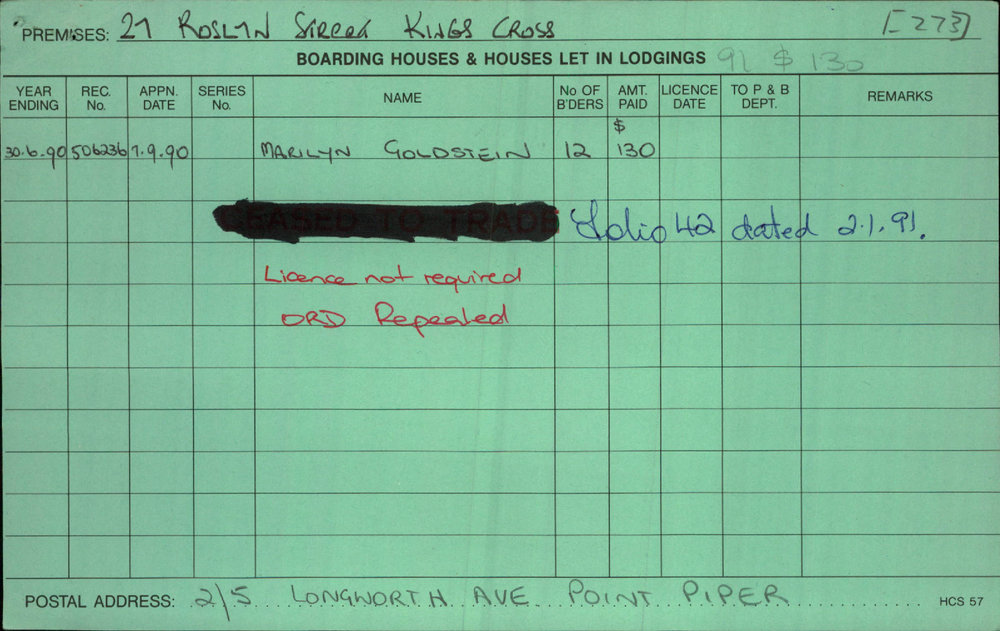 PREMISES: 27 ROSLYN Street KINGS CROSS [273]
BOARDING HOUSES & HOUSES LET IN LODGINGS 91 $ 130
YEAR ENDING REC. No. APPN. DATE SERIES No. NAME No OF B'DERS AMT. PAID LICENCE DATE TO P & B DEPT. REMARKS
$
30.6.90 506236 7.9.90 MARILYN GOLDSTEIN 12 130
CEASED TO TRADE Folio 42 dated 2.1.91.
Licence not required
ORD Repealed
POSTAL ADDRESS: 2/5 LONGWORTH AVE POINT PIPER HCS 57